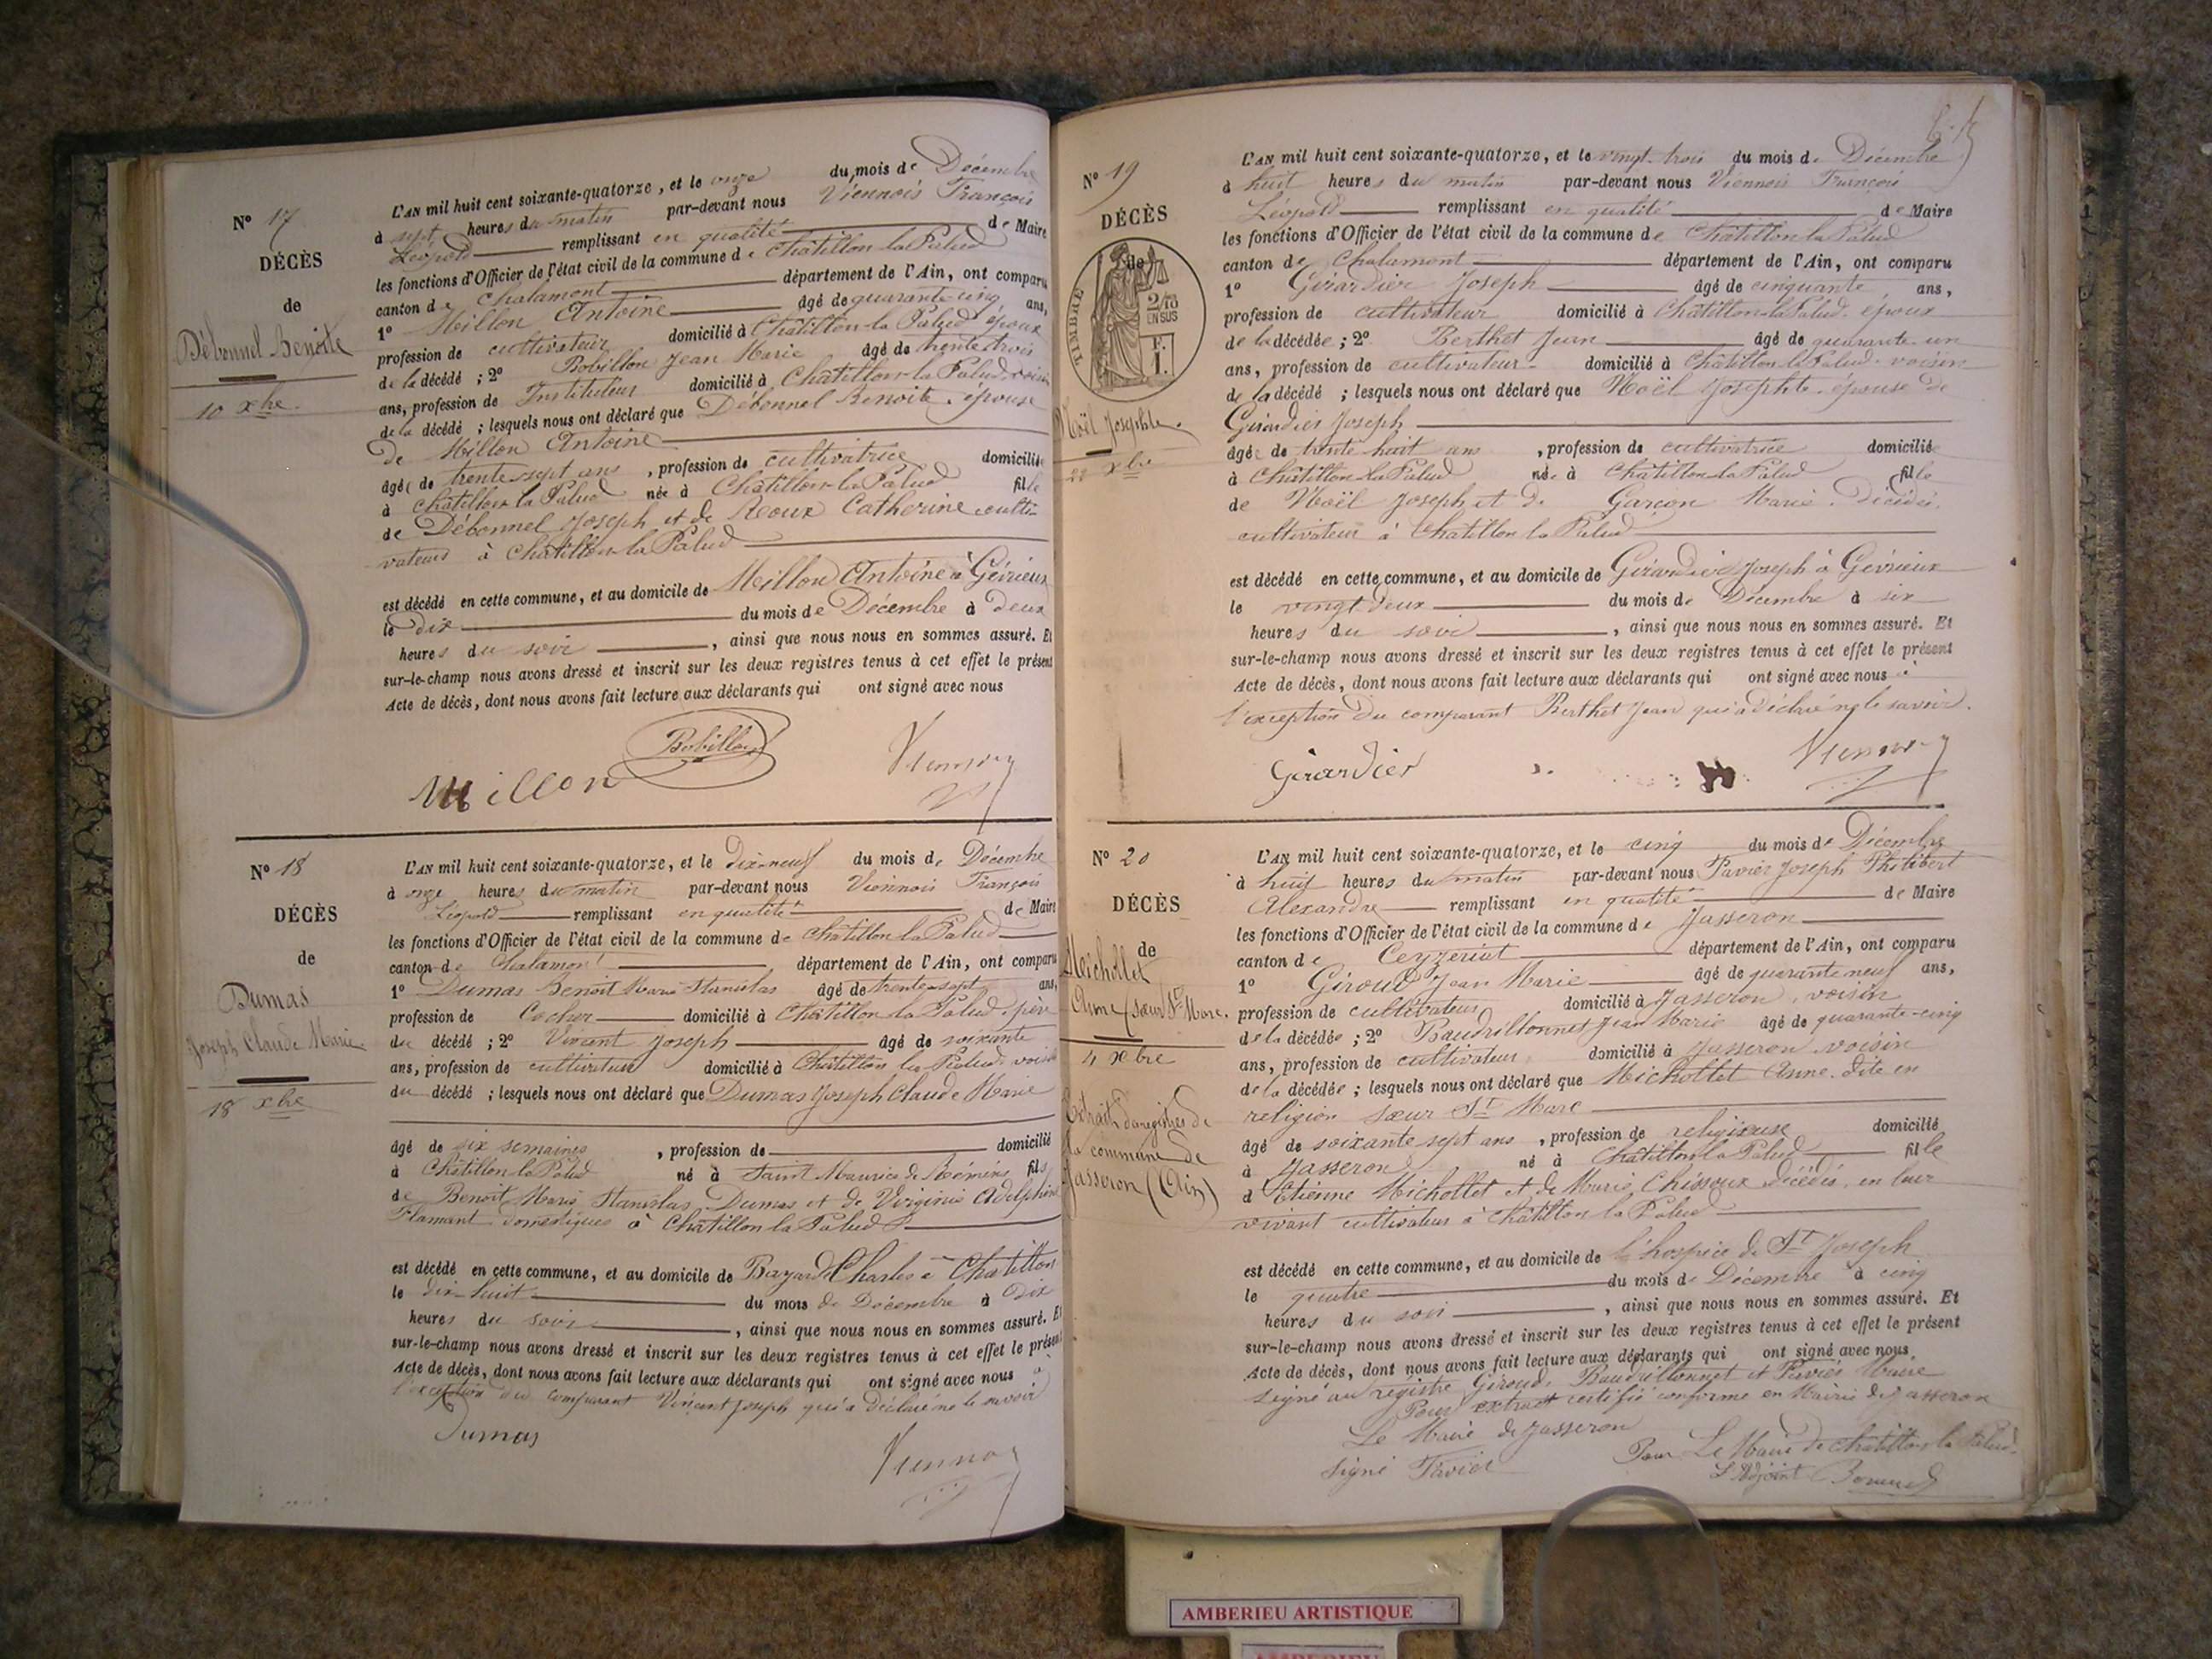 N° 17
DÉCÈS
de
Débonnel Benoîte
10 Xbre
L'AN mil huit cent soixante-quatorze, et le onze du mois de Décembre
à sept heures du matin par-devant nous Viennois François
Léopold remplissant en qualité de Maire
les fonctions d'Officier de l'état civil de la commune de Châtillon-la-Palud
canton de Chalamont département de l'Ain, ont comparu
1° Millon Antoine âgé de quarante-cinq ans,
profession de cultivateur domicilié à Châtillon-la-Palud époux
de la décédé ; 2° Bobillon Jean Marie âgé de trente-trois
ans, profession de Instituteur domicilié à Châtillon-la-Palud, voisin
de la décédé ; lesquels nous ont déclaré que Débonnel Benoîte, épouse
de Millon Antoine
âgée de trente sept ans , profession de cultivatrice domiciliée
à Châtillon la Palud née à Châtillon-la-Palud fille
de Débonnel Joseph et de Roux Catherine culti-
vateurs à Châtillon-la-Palud
est décédé en cette commune, et au domicile de Millon Antoine à Gévrieux
le dix du mois de Décembre à deux
heures du soir , ainsi que nous nous en sommes assuré. Et
sur-le-champ nous avons dressé et inscrit sur les deux registres tenus à cet effet le présent
Acte de décès, dont nous avons fait lecture aux déclarants qui ont signé avec nous
Bobillon
Millon
Viennois
N° 18
DÉCÈS
de
Dumas
Joseph Claude Marie
18 Xbre
L'AN mil huit cent soixante-quatorze, et le dix-neuf du mois de Décembre
à onze heures du matin par-devant nous Viennois François
Léopold remplissant en qualité de Maire
les fonctions d'Officier de l'état civil de la commune de Châtillon la Palud
canton de Chalamont département de l'Ain, ont comparu
1° Dumas Benoît Marie Stanislas âgé de trente-sept ans,
profession de Cocher domicilié à Châtillon la Palud, père
du décédé ; 2° Vincent Joseph âgé de soixante
ans, profession de cultivateur domicilié à Châtillon la Palud, voisin
du décédé ; lesquels nous ont déclaré que Dumas Joseph Claude Marie
âgé de six semaines , profession de domicilié
à Châtillon-la-Palud né à Saint Maurice de Rémens fils
de Benoît Marie Stanislas Dumas et de Virginie Adelphine
Flamant domestiques à Châtillon la Palud
est décédé en cette commune, et au domicile de Bayard Charles à Châtillon
le dix-huit du mois de Décembre à dix
heures du soir , ainsi que nous nous en sommes assuré. Et
sur-le-champ nous avons dressé et inscrit sur les deux registres tenus à cet effet le présent
Acte de décès, dont nous avons fait lecture aux déclarants qui ont signé avec nous à
l'exception du comparant Vincent Joseph qui a déclaré ne le savoir
Dumas
Viennois
N° 19
DÉCÈS
de
TIMBRE
2/10
EN SUS
F.
1.
Noël Josephte.
22 Xbre
L'AN mil huit cent soixante-quatorze, et le vingt-trois du mois de Décembre
à huit heures du matin par-devant nous Viennois François
Léopold remplissant en qualité de Maire
les fonctions d'Officier de l'état civil de la commune de Châtillon la Palud
canton de Chalamont département de l'Ain, ont comparu
1° Girardier Joseph âgé de cinquante ans,
profession de cultivateur domicilié à Châtillon-la-Palud, époux
de la décédée ; 2° Berthet Jean âgé de quarante-un
ans, profession de cultivateur domicilié à Châtillon la Palud, voisin
de la décédé ; lesquels nous ont déclaré que Noël Josephte, épouse de
Girardier Joseph
âgée de trente huit ans , profession de cultivatrice domiciliée
à Châtillon-la-Palud née à Châtillon la Palud fille
de Noël Joseph et de Garçon Marie, Décédés,
cultivateur à Châtillon la Palud
est décédé en cette commune, et au domicile de Girardier Joseph à Gévrieux
le vingt-deux du mois de Décembre à six
heures du soir , ainsi que nous nous en sommes assuré. Et
sur-le-champ nous avons dressé et inscrit sur les deux registres tenus à cet effet le présent
Acte de décès, dont nous avons fait lecture aux déclarants qui ont signé avec nous à
l'exception du comparant Berthet Jean qui a déclaré ne le savoir.
Girardier
Viennois
N° 20
DÉCÈS
de
Michollet
Anne (sœur St Marc.
4 Xbre
Extrait des registres de
la commune de
Jasseron (Ain)
L'AN mil huit cent soixante-quatorze, et le cinq du mois de Décembre
à huit heures du matin par-devant nous Pavier Joseph Philibert
Alexandre remplissant en qualité de Maire
les fonctions d'Officier de l'état civil de la commune de Jasseron
canton de Ceyzeriat département de l'Ain, ont comparu
1° Giroud Jean Marie âgé de quarante neuf ans,
profession de cultivateur domicilié à Jasseron, voisin
de la décédée ; 2° Baudrillonnet Jean Marie âgé de quarante-cinq
ans, profession de cultivateur domicilié à Jasseron voisin
de la décédée ; lesquels nous ont déclaré que Michollet Anne, dite en
religion sœur St Marc
âgé de soixante sept ans , profession de religieuse domicilié
à Jasseron né à Châtillon la Palud fille
d'Etienne Michollet et de Marie Chissoux décédés, en leur
vivant cultivateur à Châtillon la Palud
est décédé en cette commune, et au domicile de l'hospice de St Joseph
le quatre du mois de Décembre à cinq
heures du soir , ainsi que nous nous en sommes assuré. Et
sur-le-champ nous avons dressé et inscrit sur les deux registres tenus à cet effet le présent
Acte de décès, dont nous avons fait lecture aux déclarants qui ont signé avec nous
signé au registre Giroud, Baudrillonnet et Pavier Maire
Pour extrait certifié conforme en Mairie de Jasseron
Le Maire de Jasseron
signé Pavier
Pour Le Maire de Châtillon la Palud
L'Adjoint
AMBERIEU ARTISTIQUE
AMBERIEU